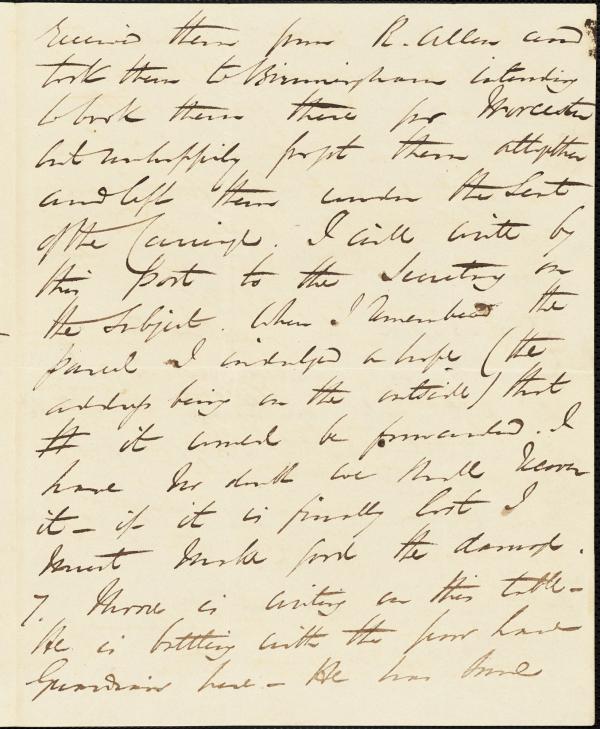 received them from R. Allen and
took them to Birmingham intending
to book them there for Worcester
but unhappily forgot them altogether
and left them under the Seat
of the Carriage. I will write by
this Post to the Secretary on
the subject. When I remembered the
parcel I indulged a hope (the
address being on the outside) that
it would be forwarded. I
have no doubt we shall recover
it - if it is finally lost I
must make good the damage.
7. Moore is writing on this table -
He is battling with the poor law
Guardians here - He has